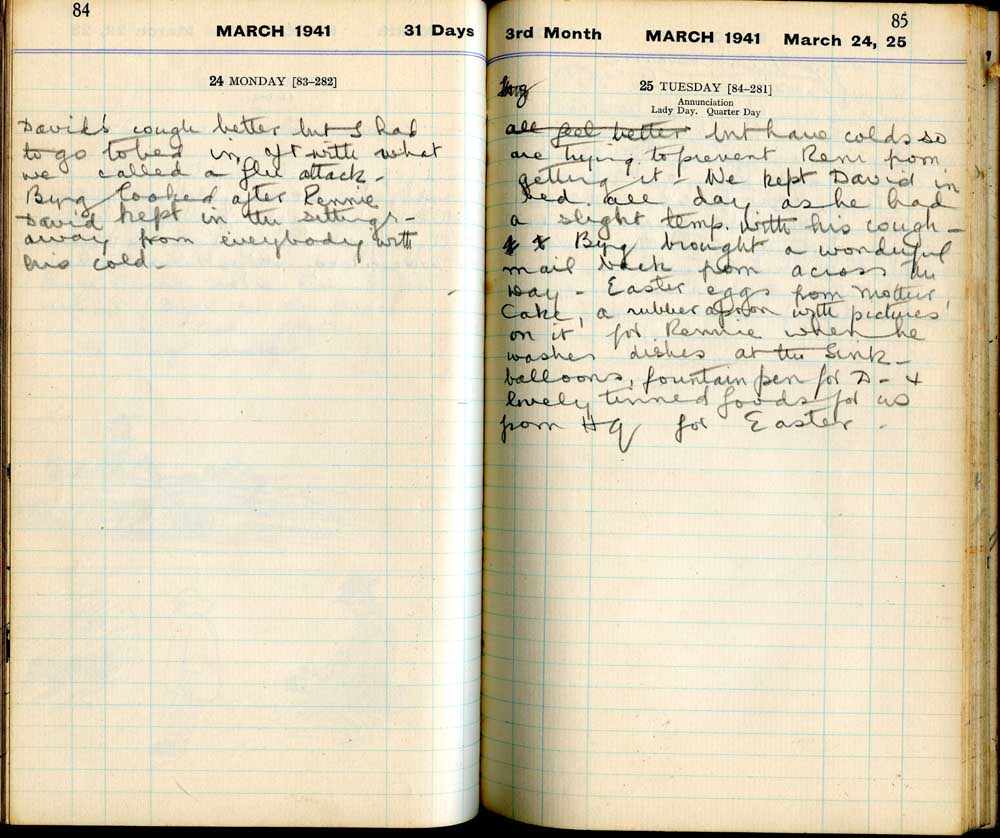 84
MARCH 1941 31 Days
24 MONDAY [83–282]
David's cough better but I had
to go to bed in aft with what
we called a flu attack -
Byng looked after Rennie
David kept in the sittingr -
away from everybody with
his cold -
85
3rd Month MARCH 1941 March 24, 25
25 TUESDAY [84–281]
Annunciation
Lady Day. Quarter Day
all feel better but have colds so
are trying to prevent Reni from
getting it - We kept David in
bed all day as he had
a slight temp. with his cough -
Byng brought a wonderful
mail back from across the
Bay - Easter eggs from Mother,
Cake, a rubber apron with pictures
on it for Rennie when he
washes dishes at the sink -
balloons, fountain pen for D - +
lovely tinned foods for us
from HQ for Easter -